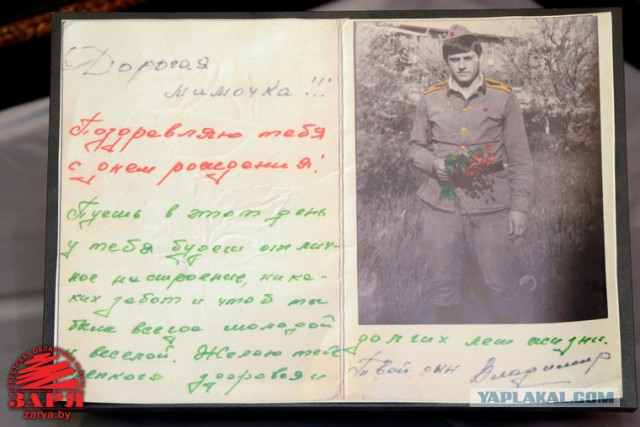 Дорогая
мамочка!!!
Поздравляю тебя
с днем рождения!
Пусть в этот день
у тебя будет отлич-
ное настроение, ника-
ких забот и чтоб ты
была всегда молодой
и веселой. Желаю тебе
крепкого здоровья и
долгих лет жизни.
Твой сын Владимир
БРЕСТСКАЯ ОБЛАСТНАЯ
ЗАРЯ
zarya.by
YAPLAKAL.COM